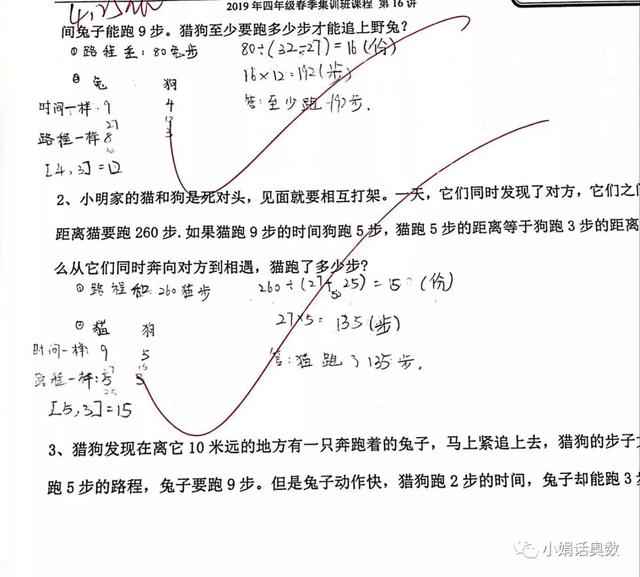 4.25
2019年四年级春季集训班课程 第16讲
间兔子能跑9步。猎狗至少要跑多少步才能追上野兔？
①路程差：80兔步
80÷(32-27)=16(份)
16×12=192(步)
② 兔 狗
答：至少跑192步.
时间一样：9 4
27 12
路程一样 8 3
32 12
[4,3]=12
2、小明家的猫和狗是死对头，见面就要相互打架。一天，它们同时发现了对方，它们之间
距离猫要跑260步.如果猫跑9步的时间狗跑5步，猫跑5步的距离等于狗跑3步的距离
么从它们同时奔向对方到相遇，猫跑了多少步？
①路程和：260猫步
260÷(27+25)=5(份)
27×5=135(步)
② 猫 狗
答：猫跑了135步.
时间一样：9 5
27 15
路程一样：5 3
25
[5,3]=15
3、猎狗发现在离它10米远的地方有一只奔跑着的兔子，马上紧追上去，猎狗的步子大
跑5步的路程，兔子要跑9步。但是兔子动作快，猎狗跑2步的时间，兔子却能跑3步
小娟话奥数